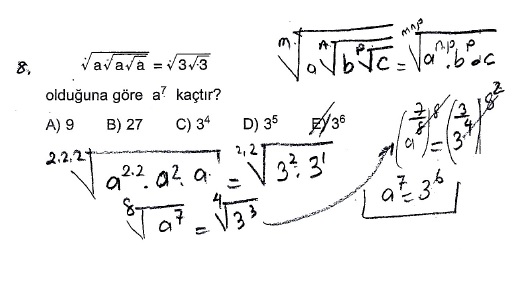 8. √(a√(a√a)) = √(3√3)
olduğuna göre a⁷ kaçtır?
A) 9 B) 27 C) 3⁴ D) 3⁵ E) 3⁶
ᵐ√(a ⁿ√(b ᵖ√c)) = ᵐ·ⁿ·ᵖ√(aⁿ·ᵖ.bᵖ.c)
²·²·²√(a²·².a².a) = ²·²√(3².3¹)
⁸√(a⁷) = ⁴√(3³)
(a^(7/8))⁸ = (3^(3/4))^8²
a⁷ = 3⁶